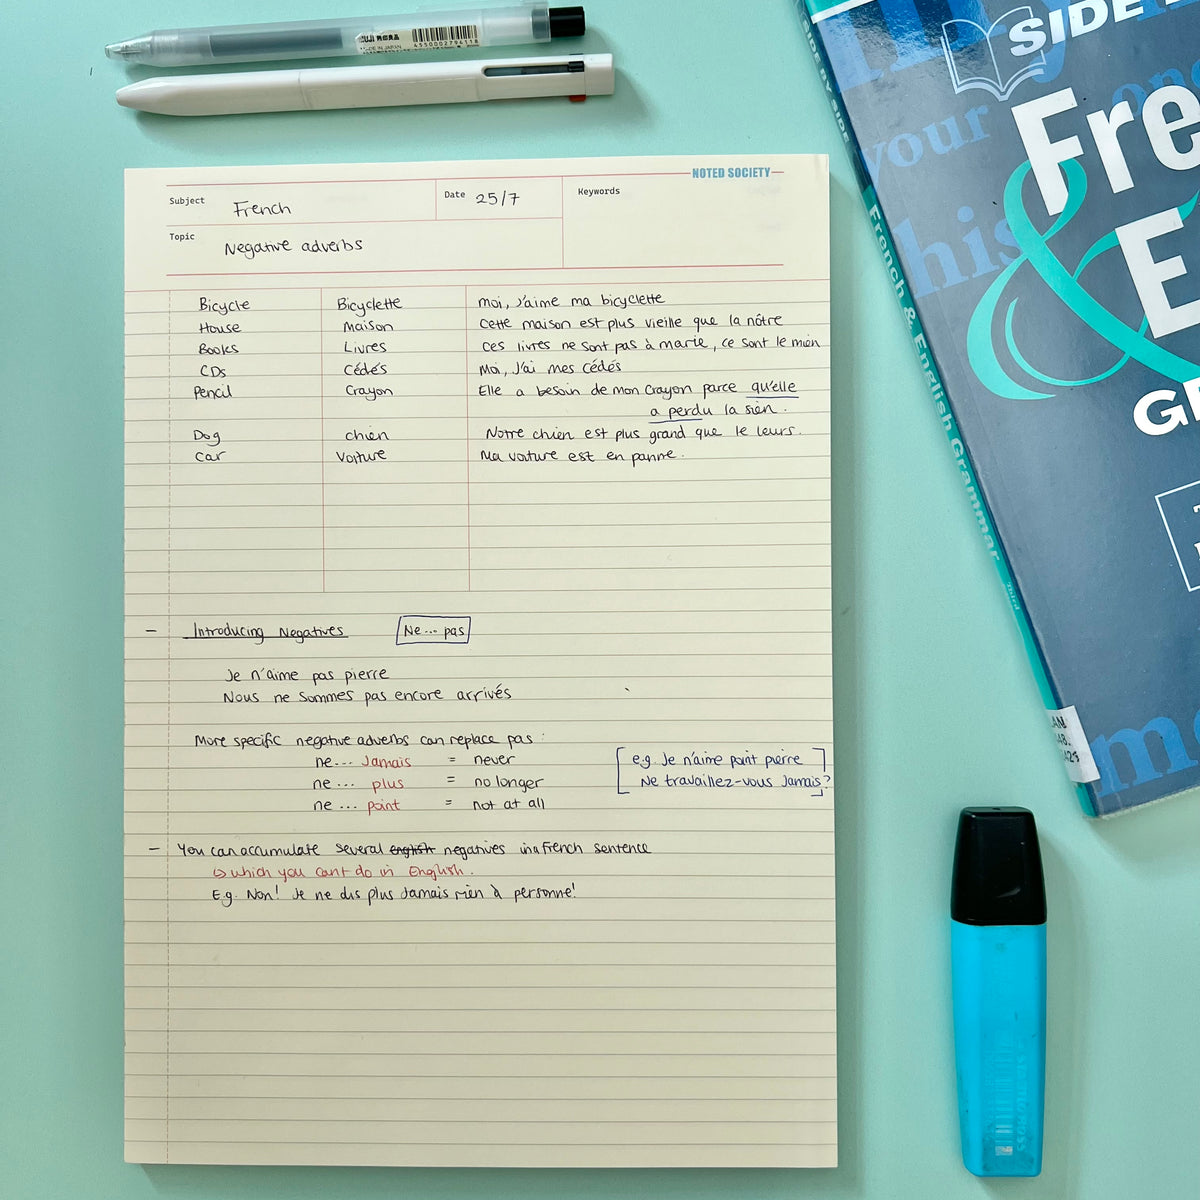 MUJI 無印良品
MADE IN JAPAN
4550002794118
SIDE
SIDE BY SIDE
Fre
&
E
G
your
this
French & English Grammar
Third
NOTED SOCIETY
Subject French
Date 25/7
Keywords
Topic Negative adverbs
Bicycle Bicyclette moi, J'aime ma bicyclette
House Maison Cette maison est plus vieille que la nôtre
Books Livres Ces livres ne sont pas à marie, ce sont le mien
CDs Cédés Moi, J'ai mes cédés
Pencil Crayon Elle a besoin de mon crayon parce qu'elle
a perdu la sien.
Dog chien Notre chien est plus grand que le leurs.
Car Voiture Ma voiture est en panne.
- Introducing Negatives Ne ... pas
Je n'aime pas pierre
Nous ne sommes pas encore arrivés
More specific negative adverbs can replace pas:
ne ... Jamais = never
ne ... plus = no longer
ne ... point = not at all
e.g. Je n'aime point pierre
Ne travaillez-vous Jamais?
- You can accumulate several english negatives in a French sentence
↳ which you cant do in English.
E.g. Non! Je ne dis plus Jamais rien à personne!